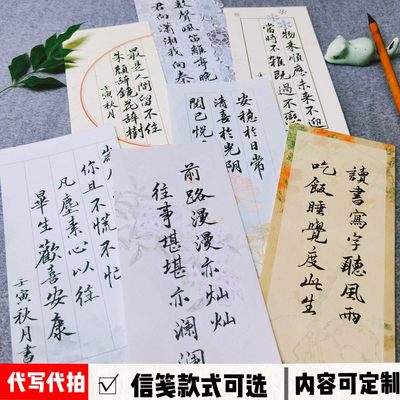 數聲風笛離亭晚
君向瀟湘我向秦
最是人間留不住
朱顏辭鏡花辭樹
壬寅秋月
物來順應未來不迎
當時不雜既過不戀
安穩於日常
清喜於光陰
閱己悅
讀書寫字聽風雨
吃飯睡覺度此生
前路漫漫亦灿灿
往事堪堪亦澜澜
你且不慌不忙
凡塵素心以往
畢生歡喜安康
壬寅秋月書
代写代拍
信笺款式可选
内容可定制